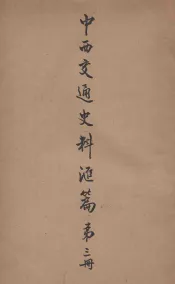 中西交通史料滙篇第三冊